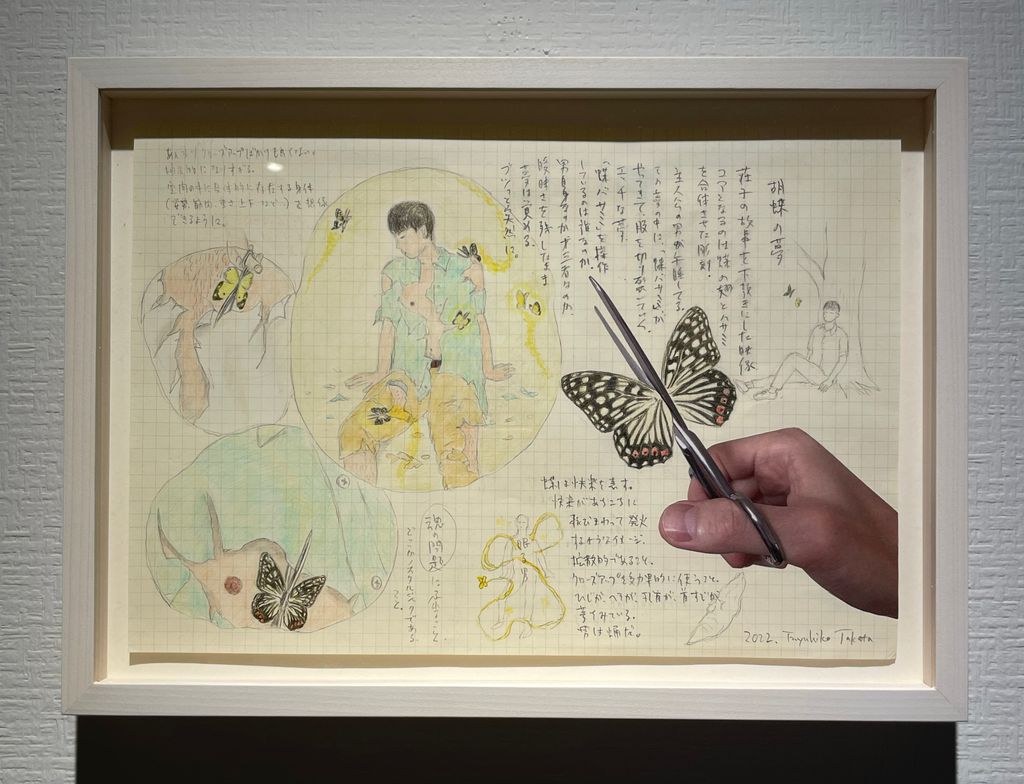 胡蝶の夢
荘子の故事を下敷きにした映像
コアとなるのは蝶の翅とハサミ
を合体させた彫刻。
主人公の男が午睡してる
その夢の中に、「蝶バサミ」が
やってきて、服を切り裂いていく
エッチな夢。
「蝶バサミ」を操作
しているのは誰なのか。
男自身なのか第三者なのか
曖昧さを残したまま
夢は覚める。
ブツッと突然に。
あんまりクローズアップばかりも良くない。
できるように。
蝶は快楽を意す。
快楽があちこちに
飛びまわって発火
するようなイメージ。
拡散的であること。
クローズアップを効果的に使うこと。
ひじが、へそが、乳首が、首すじが、
夢をみている。
男は蛹だ。
眠る男
魂の問題にふれること
どこかノスタルジックである
こと。
2022. Tsuyuhiko Taketa